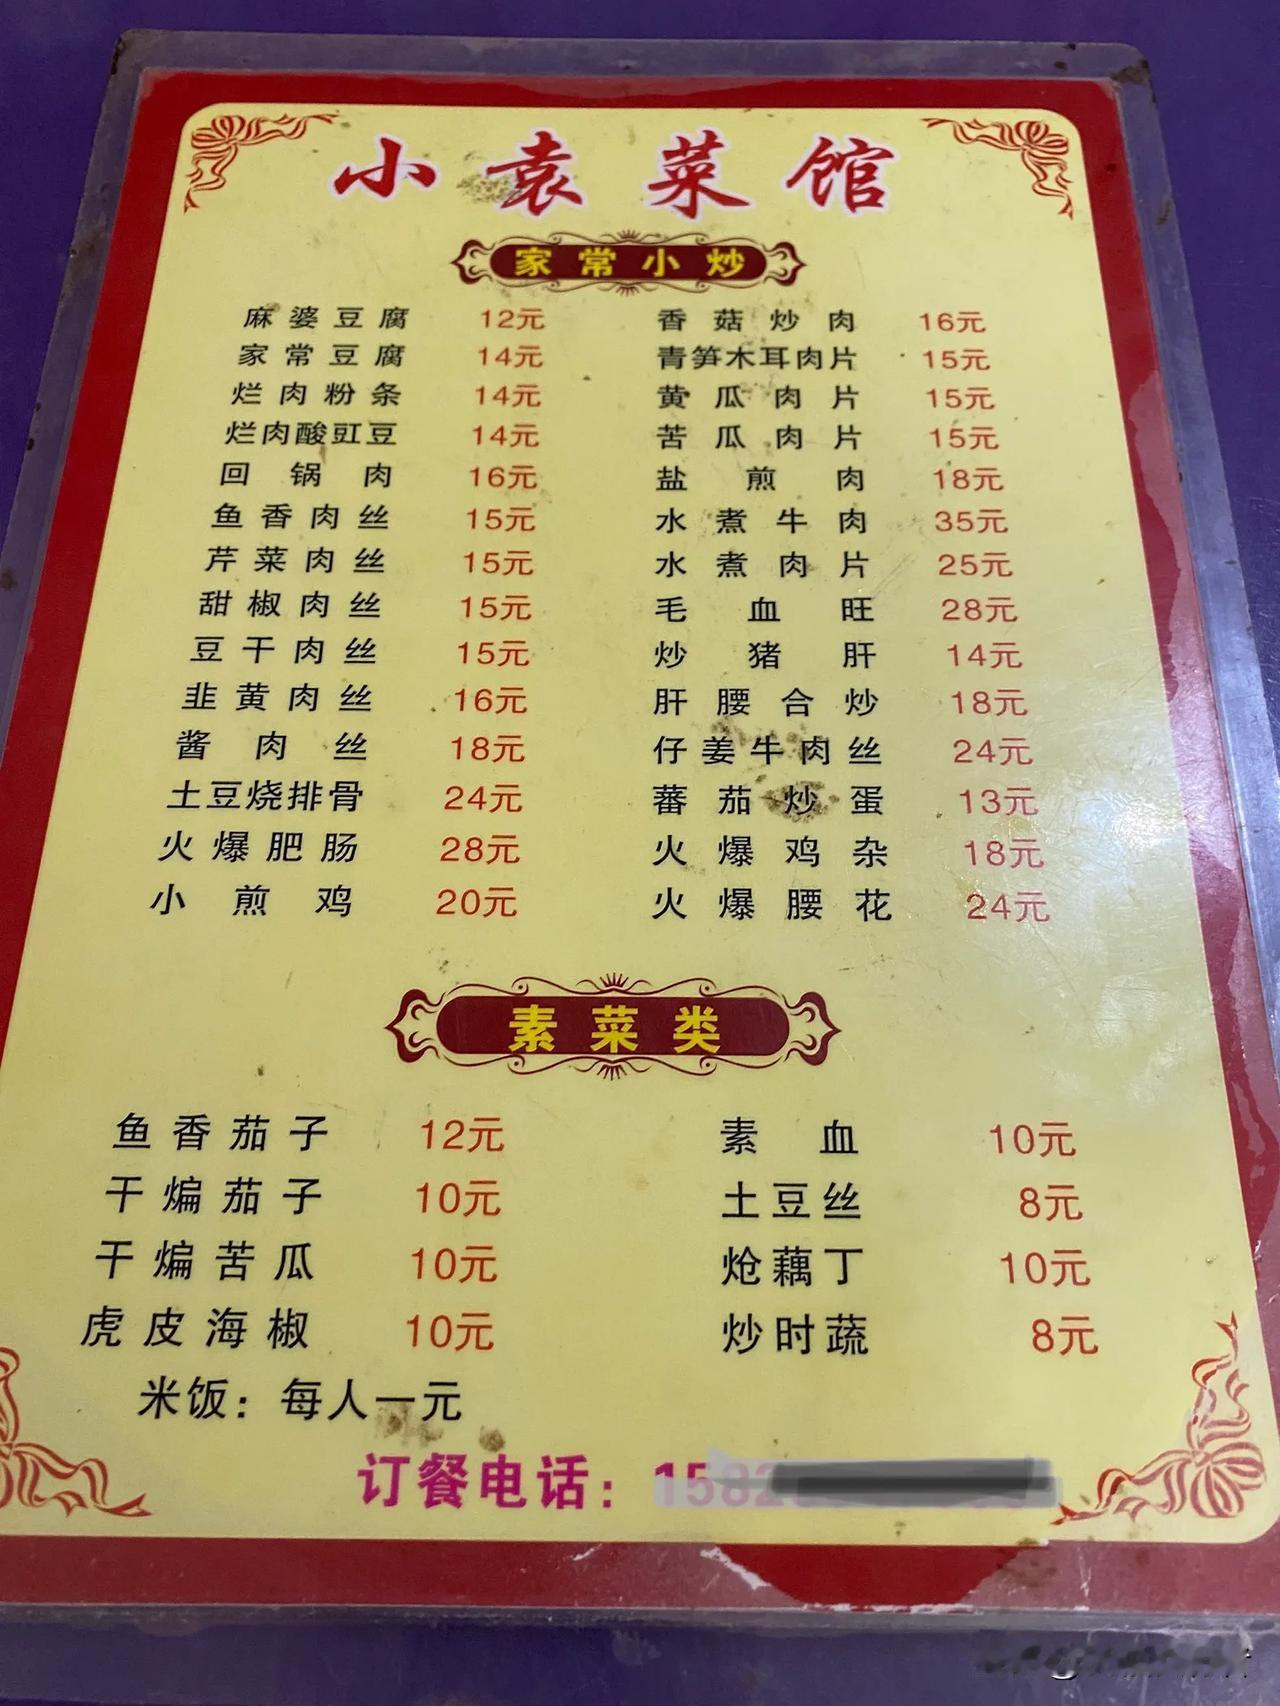 小袁菜馆
家常小炒
麻婆豆腐 12元 香菇炒肉 16元
家常豆腐 14元 青笋木耳肉片 15元
烂肉粉条 14元 黄瓜肉片 15元
烂肉酸豇豆 14元 苦瓜肉片 15元
回锅肉 16元 盐煎肉 18元
鱼香肉丝 15元 水煮牛肉 35元
芹菜肉丝 15元 水煮肉片 25元
甜椒肉丝 15元 毛血旺 28元
豆干肉丝 15元 炒猪肝 14元
韭黄肉丝 16元 肝腰合炒 18元
酱肉丝 18元 仔姜牛肉丝 24元
土豆烧排骨 24元 蕃茄炒蛋 13元
火爆肥肠 28元 火爆鸡杂 18元
小煎鸡 20元 火爆腰花 24元
素菜类
鱼香茄子 12元 素血 10元
干煸茄子 10元 土豆丝 8元
干煸苦瓜 10元 炝藕丁 10元
虎皮海椒 10元 炒时蔬 8元
米饭：每人一元
订餐电话：1582